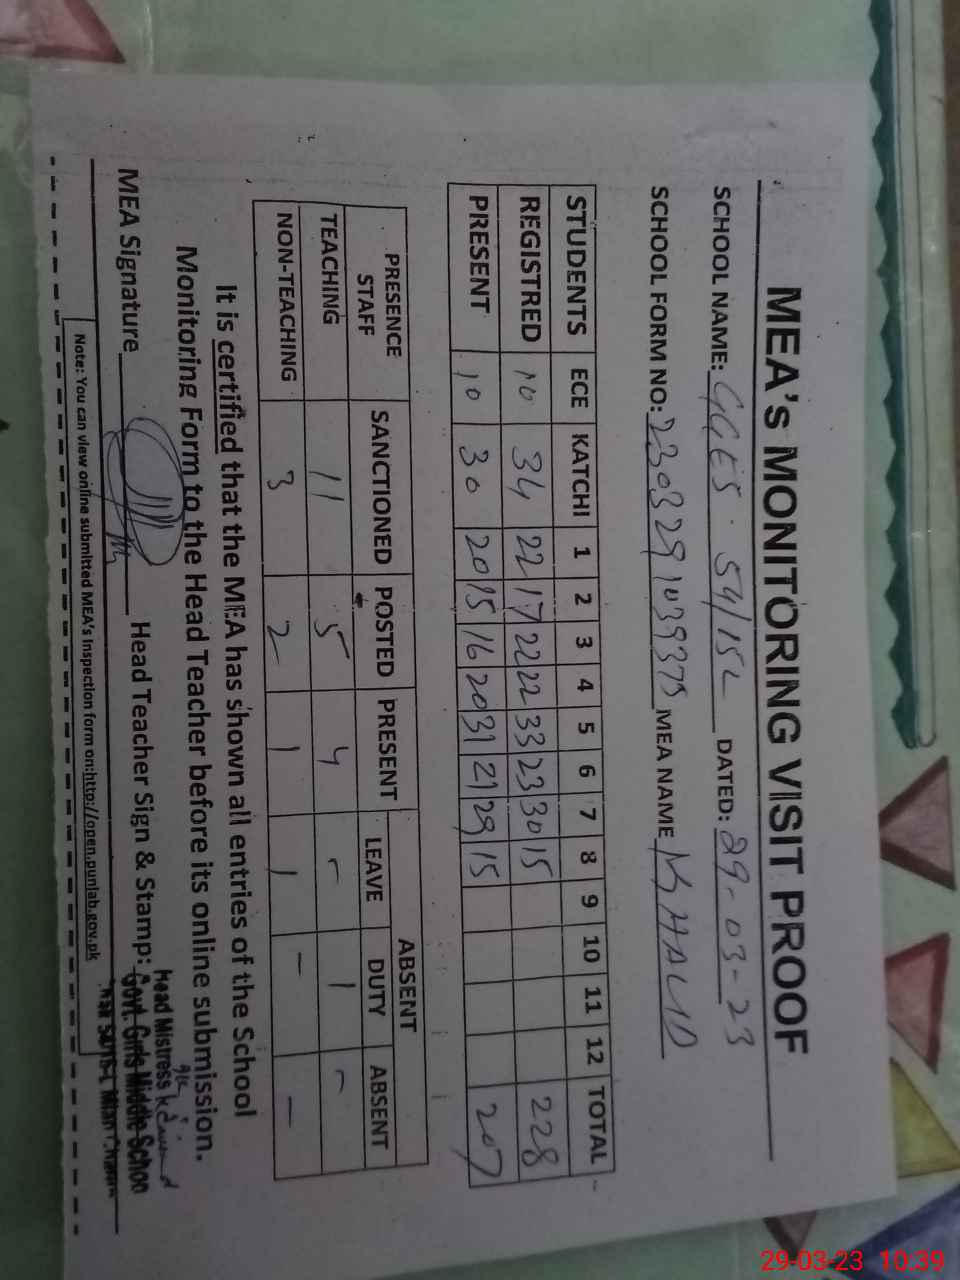 MEA's MONITORING VISIT PROOF
SCHOOL NAME: GGES 54/15L DATED: 29-03-23
SCHOOL FORM NO: 2303291039375 MEA NAME KHALID
STUDENTS ECE KATCHI 1 2 3 4 5 6 7 8 9 10 11 12 TOTAL
REGISTRED 10 34 22 17 22 22 33 23 30 15 228
PRESENT 10 30 20 15 16 20 31 21 29 15 207
PRESENCE STAFF SANCTIONED POSTED PRESENT ABSENT
LEAVE DUTY ABSENT
TEACHING 11 5 4 - 1 -
NON-TEACHING 3 2 1 1 - -
It is certified that the MEA has shown all entries of the School
Monitoring Form to the Head Teacher before its online submission.
MEA Signature Head Teacher Sign & Stamp:
Head Mistress
Govt. Girls Middle Schoo
Note: You can view online submitted MEA's Inspection form on:http://open.punjab.gov.pk
29-03-23 10:39